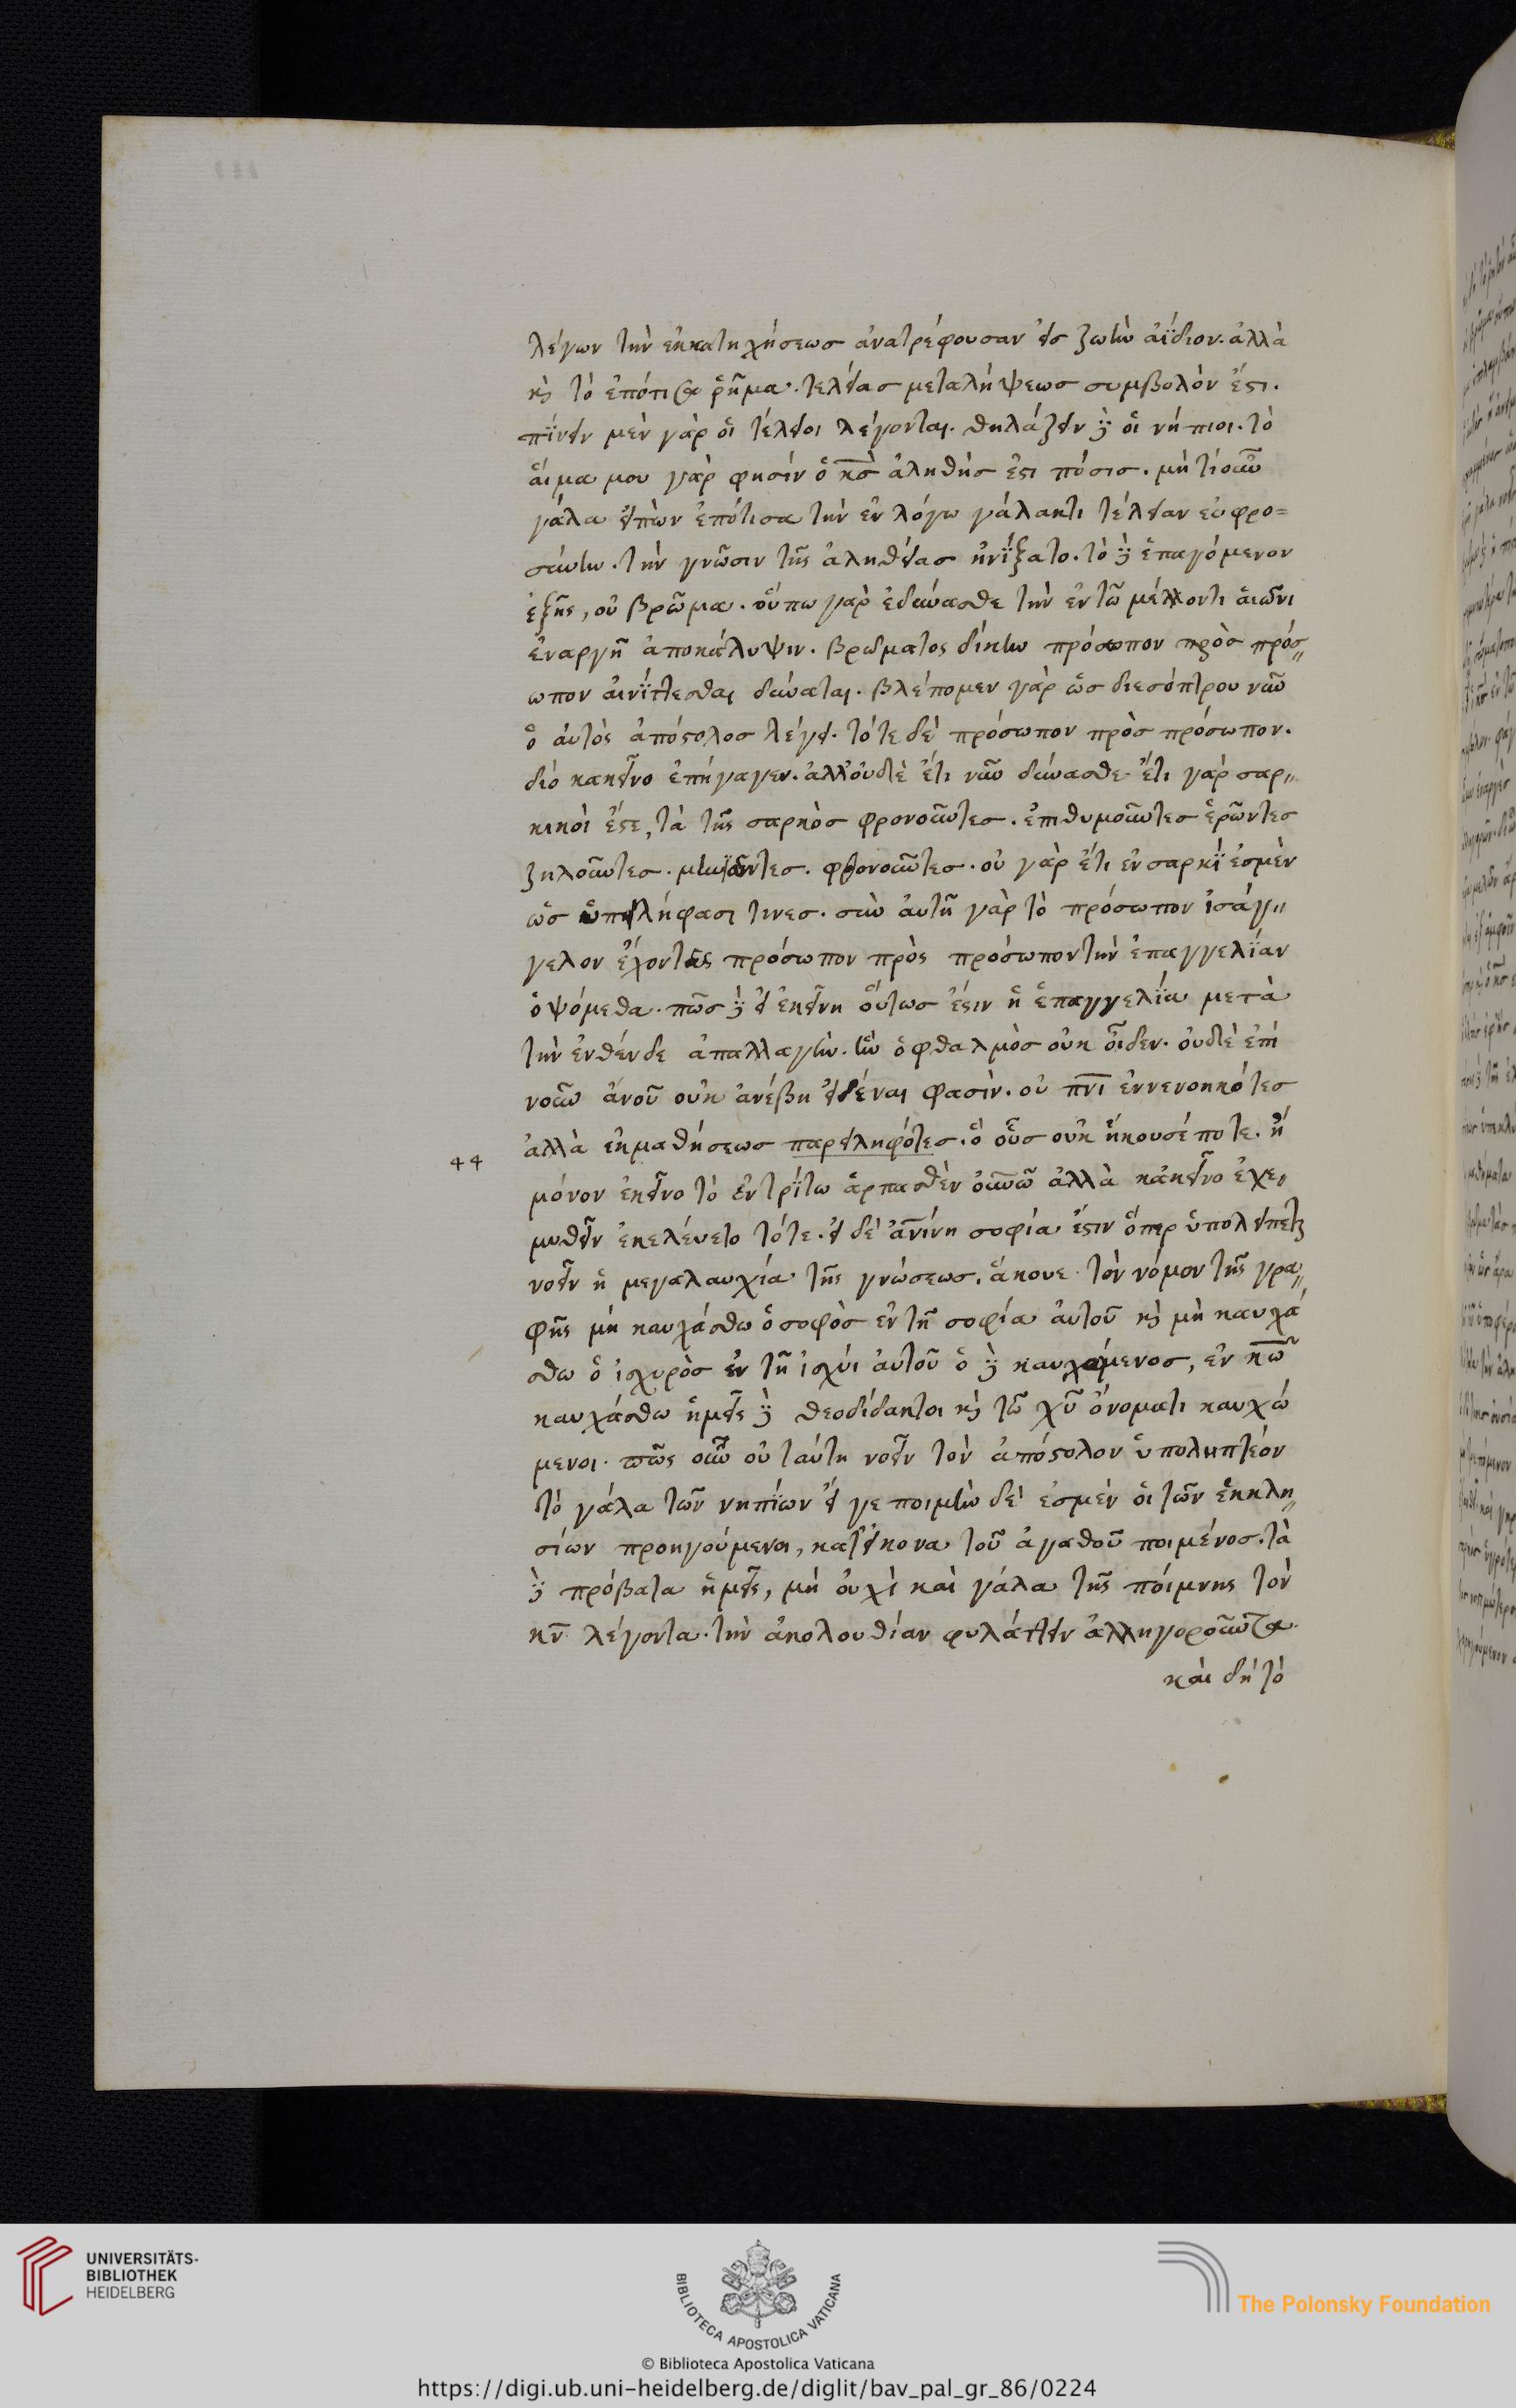 λέγων τὴν ἐκκατηχήσεως ἀνατρέφουσαν εἰς ζωὴν ἀΐδιον. ἀλλὰ
κὶ τὸ ἐπότισα ῥῆμα. τελείας μεταλήψεως συμβολόν ἐστι.
πίνειν μὲν γὰρ οἱ τέλειοι λέγονται. θηλάζειν δὲ οἱ νήπιοι. τὸ
αἷμα μου γὰρ φησίν ὁ κσ ἀληθής ἐστι πόσις. μή τι οὖν
γάλα εἰπὼν ἐπότισα τὴν ἐν λόγω γάλακτι τέλειαν εὐφρο=
σύνην. τὴν γνῶσιν τῆς ἀληθείας ἠνίξατο. τὸ δὲ ἐπαγόμενον
ἑξῆς, οὐ βρῶμα. οὔπω γὰρ ἐδύνασθε τὴν ἐν τῶ μέλλοντι αἰῶνι
ἐναργῆ ἀποκάλυψιν. βρώματος δίκην πρόσωπον πρὸς πρόσ„
ωπον αἰνίττεσθαι δύναται. βλέπομεν γὰρ ὡς διεσόπτρου νῦν
ὁ αὐτὸς ἀπόστολος λέγει. τότε δὲ πρόσωπον πρὸς πρόσωπον.
διὸ κακεῖνο ἐπήγαγεν. ἀλλ' οὐδὲ ἔτι νῦν δύνασθε. ἔτι γὰρ σαρ„
κικοὶ ἐστε, τὰ τῆς σαρκὸς φρονοῦντες. ἐπιθυμοῦντες ἐρῶντες
ζηλοῦντες. μηνιῶντες. φθονοῦντες. οὐ γὰρ ἔτι ἐν σαρκὶ ἐσμὲν
ὡς ὑπειλήφασι τινες. σὺν αὐτῆ γὰρ τὸ πρόσωπον ἰσάγ„
γελον ἔχοντες πρόσωπον πρὸς πρόσωπον τὴν ἐπαγγελίαν
ὀψόμεθα. πῶς δὲ εἰ ἐκείνη ὄντως ἐστιν ἡ ἐπαγγελία μετὰ
τὴν ἐνθένδε ἀπαλλαγὴν. ἣν ὀφθαλμὸς οὐκ οἶδεν. οὐδὲ ἐπὶ
νοῦν ἀνοῦ οὐκ ἀνέβη εἰδέναι φασὶν. οὐ πνι ἐννενοηκότες
ἀλλὰ ἐκμαθήσεως παρειληφότες. ὃ οὖς οὐκ ἤκουσέ ποτε. ἢ
44
μόνον ἐκεῖνο τὸ ἐν τρίτω ἁρπασθὲν οὐνῶ ἀλλὰ κἀκεῖνο ἐχε„
μυθεῖν ἐκελεύετο τότε. εἰ δὲ ἀνίνη σοφία ἐστιν ὅπερ ὑπολείπεται
νοεῖν ἡ μεγαλαυχία τῆς γνώσεως. ἄκουε τὸν νόμον τῆς γρα„
φῆς μὴ καυχάσθω ὁ σοφὸς ἐν τῆ σοφία αὐτοῦ κὶ μὴ καυχά
σθω ὁ ἰσχυρὸς ἐν τῆ ἰσχύι αὐτοῦ ὁ δὲ καυχώμενος, ἐν κω
καυχάσθω ἡμεῖς δὲ θεοδίδακτοι κὶ τῶ χῦ ὀνόματι καυχώ
μενοι. πῶς οὖν οὐ ταύτη νοεῖν τὸν ἀπόστολον ὑποληπτέον
τὸ γάλα τῶν νηπίων εἴ γε ποιμὴν δὲ ἐσμὲν οἱ τῶν ἐκκλη„
σίων προηγούμενοι, κατ' εἰκονα τοῦ ἀγαθοῦ ποιμένος. τὰ
δὲ πρόβατα ἡμεῖς, μὴ οὐχὶ καὶ γάλα τῆς ποίμνης τὸν
κν λέγοντα. τὴν ἀκολουθίαν φυλάττειν ἀλληγοροῦντα.
καὶ δὴ τὸ
UNIVERSITÄTS-
BIBLIOTHEK
HEIDELBERG
BIBLIOTECA APOSTOLICA VATICANA
The Polonsky Foundation
© Biblioteca Apostolica Vaticana
https://digi.ub.uni-heidelberg.de/diglit/bav_pal_gr_86/0224